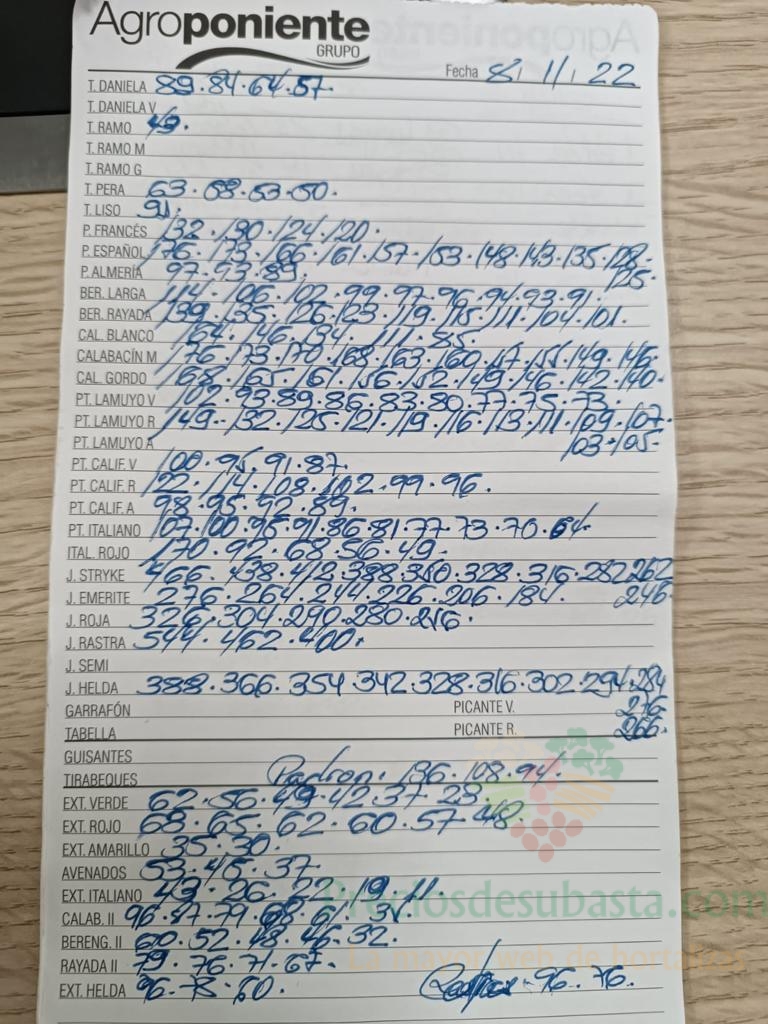 Agroponiente
GRUPO
Fecha 8, 11, 22
T. DANIELA 89.84.64.57.
T. DANIELA V
T. RAMO 49.
T. RAMO M
T. RAMO G
T. PERA 63.58.53.50.
T. LISO 91.
P. FRANCÉS 132.130.124.120.
P. ESPAÑOL 176.173.166.161.157.153.148.143.135.128.
125.
P. ALMERÍA 97.93.89.
BER. LARGA 114.106.102.99.97.96.94.93.91.
BER. RAYADA 139.135.126.123.119.115.111.104.101.
CAL. BLANCO 164.146.134.111.85.
CALABACÍN M 176.173.170.168.163.160.157.155.149.146.
CAL. GORDO 168.165.161.156.152.149.146.142.140.
PT. LAMUYO V 102.93.89.86.83.80.77.75.73.
PT. LAMUYO R 149.132.125.121.119.116.113.111.109.107.
PT. LAMUYO A 103.105.
PT. CALIF. V 100.95.91.87.
PT. CALIF. R 122.114.108.102.99.96.
PT. CALIF. A 98.95.92.89.
PT. ITALIANO 107.100.95.91.86.81.77.73.70.64.
ITAL. ROJO 170.92.68.56.49.
J. STRYKE 466.438.412.388.350.328.316.282.262
J. EMERITE 276.264.244.226.206.184. 246.
J. ROJA 326.304.290.280.216.
J. RASTRA 544.462.400.
J. SEMI
J. HELDA 388.366.354.342.328.316.302.294.284
GARRAFÓN PICANTE V. 276.
TABELLA PICANTE R. 266.
GUISANTES
TIRABEQUES Padron. 136.108.94.
EXT. VERDE 62.56.49.42.37.23.
EXT. ROJO 68.65.62.60.57.48.
EXT. AMARILLO 35.30.
AVENADOS 53.45.37.
EXT. ITALIANO 43.26.22.19.11.
Preciosdesubasta.com
CALAB. II 96.87.79.68.61.31.
BERENG. II 60.52.48.46.32.
La mayor web de hortalizas
RAYADA II 79.76.71.67.
EXT. HELDA 96.78.60. 96.76.